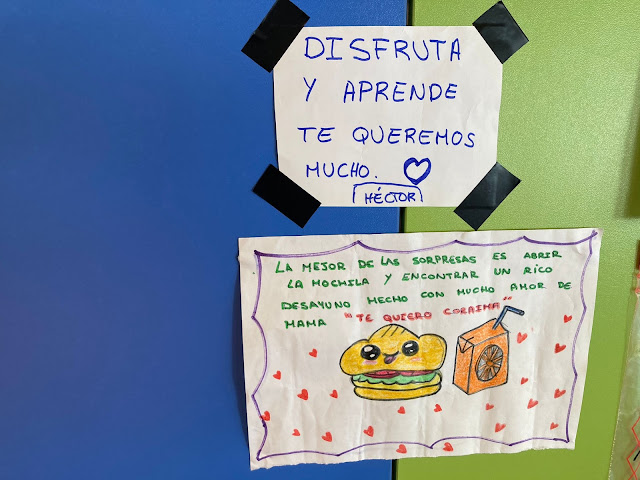 DISFRUTA
Y APRENDE
TE QUEREMOS
MUCHO.
HÉCTOR
LA MEJOR DE LAS SORPRESAS ES ABRIR
LA MOCHILA Y ENCONTRAR UN RICO
DESAYUNO HECHO CON MUCHO AMOR DE
MAMA "TE QUIERO CORAIMA"